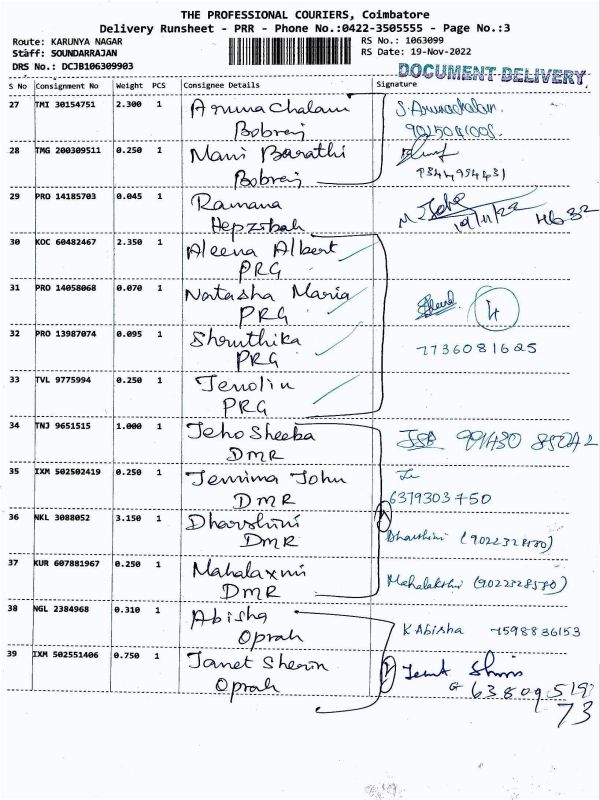 THE PROFESSIONAL COURIERS, Coimbatore
Delivery Runsheet - PRR - Phone No.:0422-3505555 - Page No.:3
Route: KARUNYA NAGAR RS No.: 1063099
Staff: SOUNDARRAJAN RS Date: 19-Nov-2022
DRS No.: DCJB106309903 DOCUMENT DELIVERY
S No Consignment No Weight PCS Consignee Details Signature
27 TMI 30154751 2.300 1 Arunachalam S. Arunachalam
Bobrej
28 TMG 200309511 0.250 1 Mani Barathi
Bobrej
29 PRO 14185703 0.045 1 Ramana
Hepzibah 19/11/22
30 KOC 60482467 2.350 1 Aleena Albert
PRG
31 PRO 14058068 0.070 1 Natasha Maria
PRG 4
32 PRO 13987074 0.095 1 Shruthika
PRG 7736081625
33 TVL 9775994 0.250 1 Jenolin
PRG
34 TNJ 9651515 1.000 1 Jeho Sheeba
DMR
35 IXM 502502419 0.250 1 Jemima John
DMR 6379303750
36 NKL 3088052 3.150 1 Dharshini
DMR Dharshini
37 KUR 607881967 0.250 1 Mahalaxmi
DMR Mahalakshmi
38 NGL 2384968 0.310 1 Abisha
Oprah K Abisha 7598836153
39 IXM 502551406 0.750 1 Janet Sherin
Oprah
73